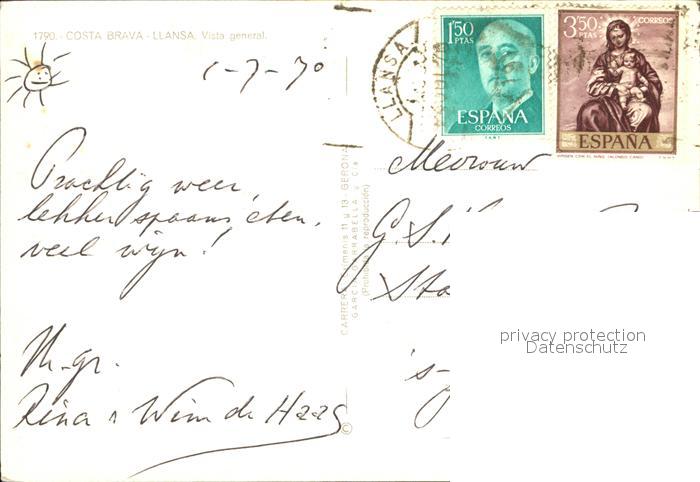 1790.- COSTA BRAVA - LLANSA. Vista general.
1-7-70
Prachtig weer,
lekker spaans eten,
veel wijn!
M.gr.
Rina & Wim de Haas
CARRER
GERONA
GARCIA GARRABELLA y Cía
(Prohibida la reproducción)
©
LLANSA
1'50
PTAS
ESPAÑA
CORREOS
3'50
PTAS
CORREOS
ESPAÑA
Mevrouw
G.S.
Sta
's-
privacy protection
Datenschutz